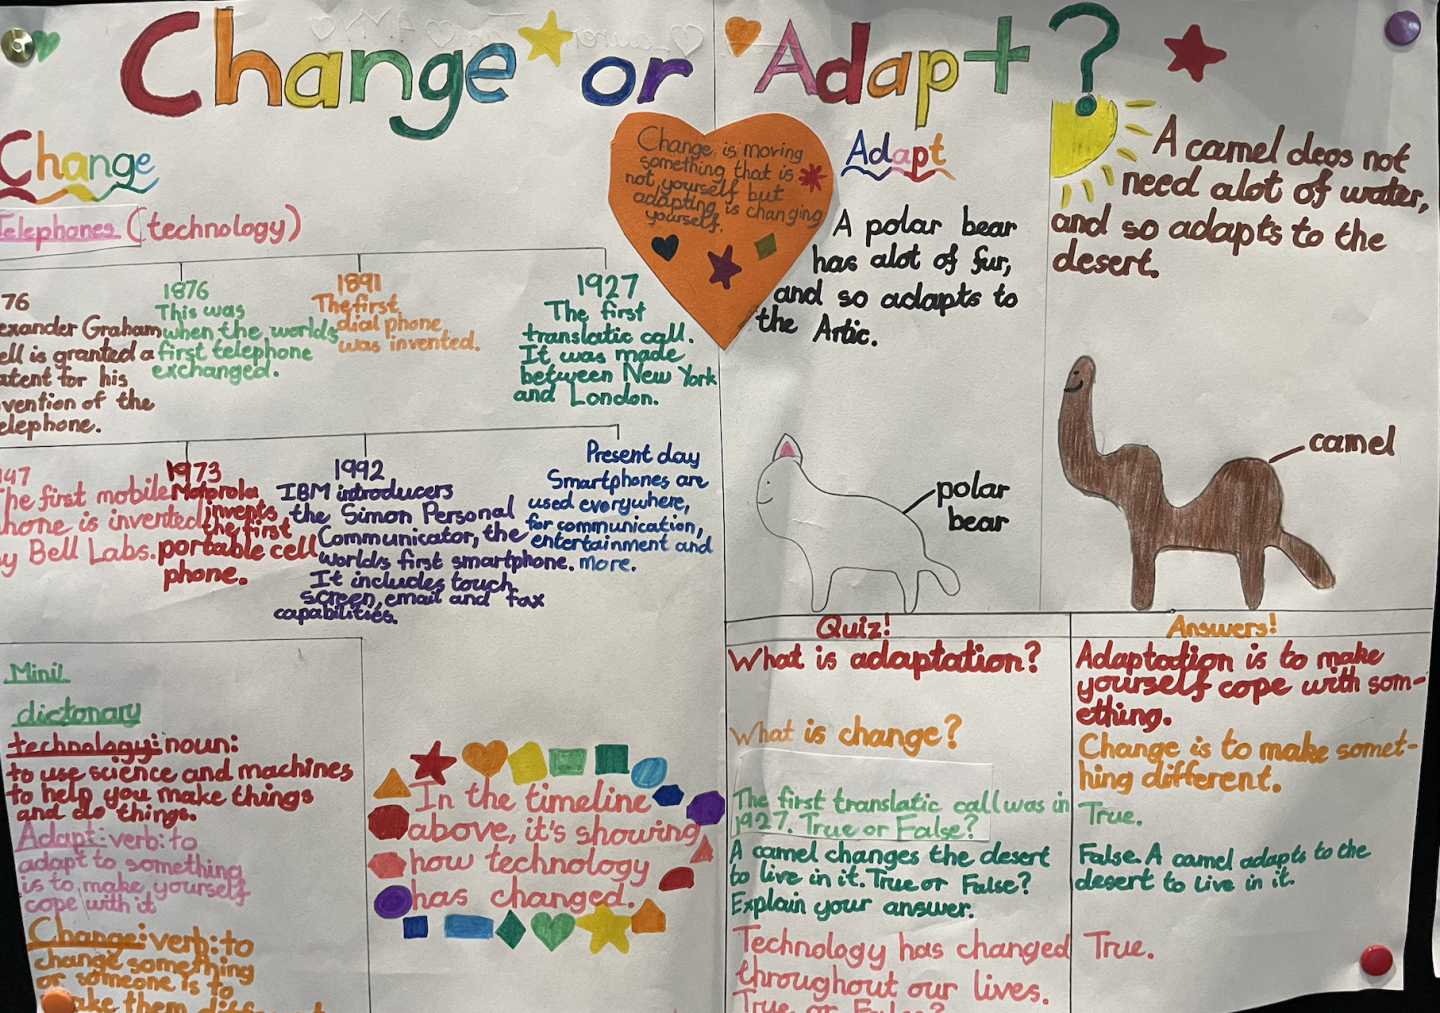 Change or Adapt?
Change
Telephones (technology)
76
exander Graham
ell is granted a
atent for his
vention of the
elephone.
1876
This was
when the worlds
first telephone
exchanged.
1891
The first
dial phone
was invented.
1927
The first
translatic call.
It was made
between New York
and London.
47
he first mobile
hone is invented
y Bell Labs.
1973
Motorola
invents
the first
portable cell
phone.
1992
IBM introducers
the Simon Personal
Communicator, the
worlds first smartphone.
It includes touch
screen, email and fax
capabilities.
Present day
Smartphones are
used everywhere,
for communication,
entertainment and
more.
Change is moving
something that is
not yourself but
adapting is changing
yourself.
Adapt
A polar bear
has alot of fur,
and so adapts to
the Artic.
A camel deos not
need alot of water,
and so adapts to the
desert.
polar
bear
camel
Mini
dictonary
technology: noun:
to use science and machines
to help you make things
and do things.
Adapt: verb: to
adapt to something
is to make yourself
cope with it
Change: verb: to
change something
or someone is to
ake them
In the timeline
above, it's showing
how technology
has changed.
Quiz!
What is adaptation?
What is change?
The first translatic call was in
1927. True or False?
A camel changes the desert
to live in it. True or False?
Explain your answer.
Technology has changed
throughout our lives.
True or False?
Answers!
Adaptation is to make
yourself cope with som-
ething.
Change is to make somet-
hing different.
True.
False. A camel adapts to the
desert to live in it.
True.